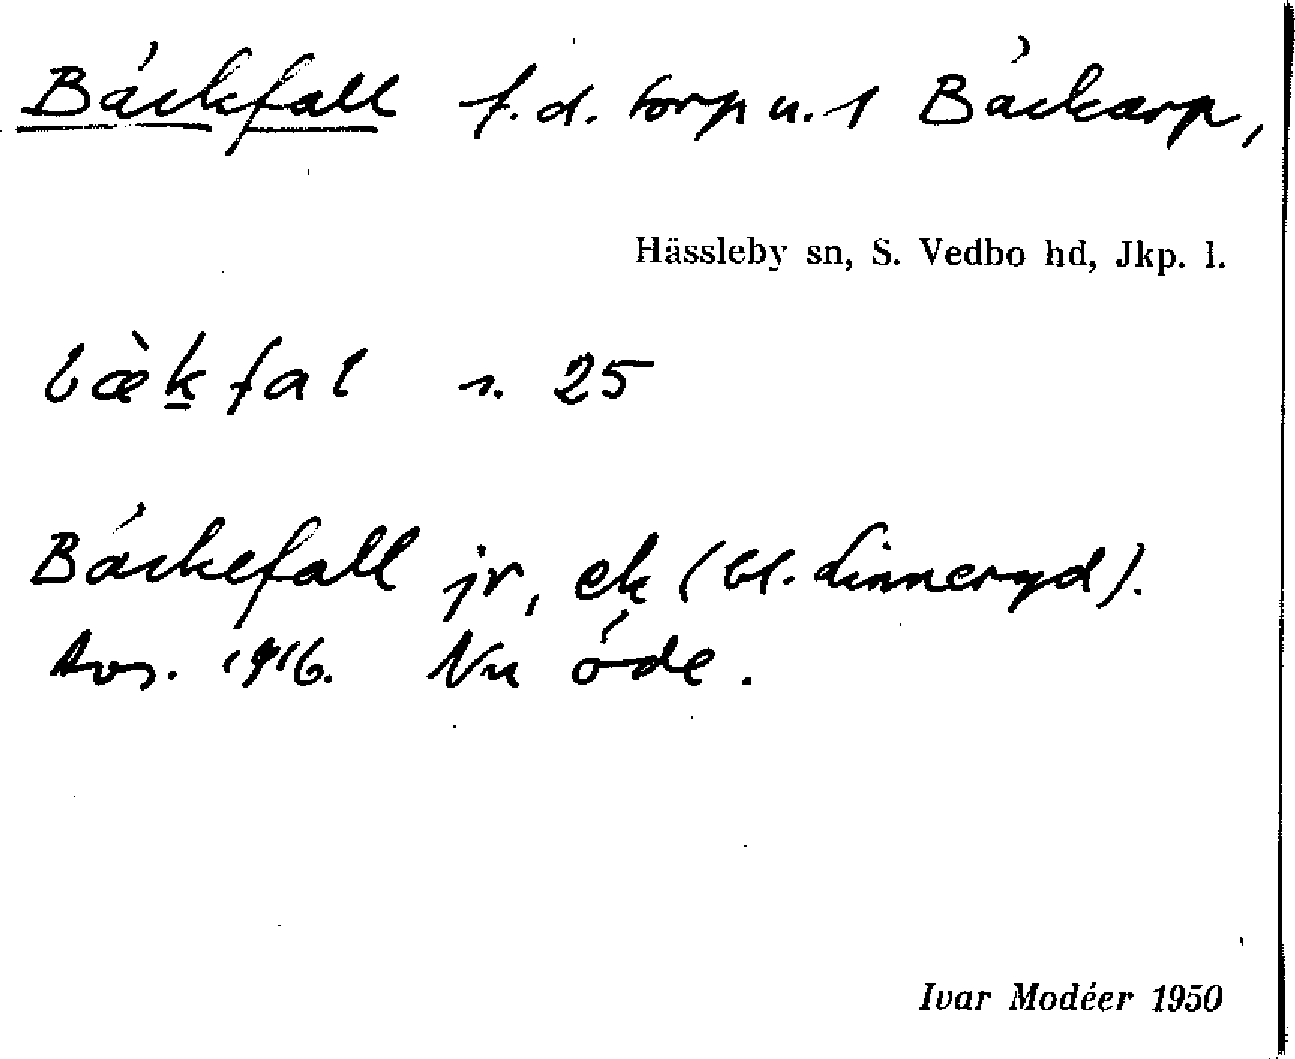 Bäckfall f.d. torp u. 1 Bäckarp,
Hässleby sn, S. Vedbo hd, Jkp. l.
bæ̀k̲fal s. 25
Bäckefall jr, ek (bl. Linneryd).
Avs. 1916. Nu öde.
Ivar Modéer 1950